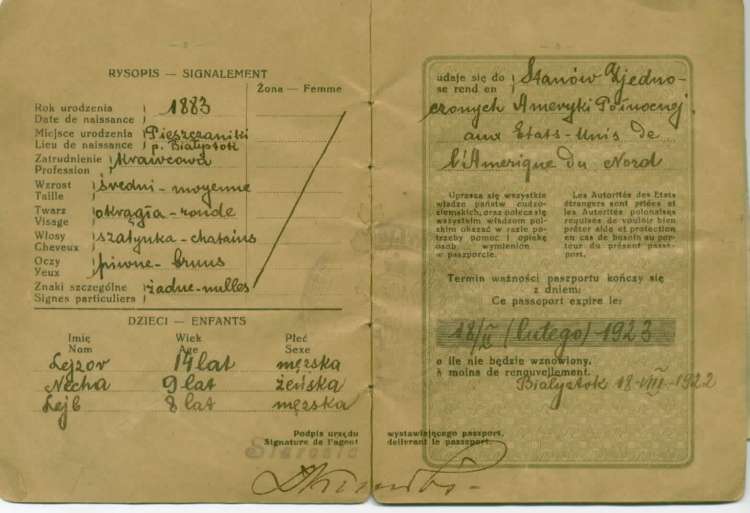 RYSOPIS — SIGNALEMENT
Żona — Femme
Rok urodzenia 1883
Date de naissance
Miejsce urodzenia Pieszczaniki
Lieu de naissance p. Białystok
Zatrudnienie Krawcowa
Profession
Wzrost średni - moyenne
Taille
Twarz okrągła - ronde
Visage
Włosy szatynka - chatains
Cheveux
Oczy piwne - bruns
Yeux
Znaki szczególne żadne - nulles
Signes particuliers
DZIECI — ENFANTS
Imię Wiek Płeć
Nom Age Sexe
Lejzor 14 lat męzska
Necha 9 lat żeńska
Lejb 8 lat męzska
Podpis urzędu
Signature de l'agent
Starosta
udaje się do Stanów Zjedno-
se rend en
czonych Ameryki Północnej
aux Etats-Unis de
l'Amerique du Nord
Uprasza się wszystkie
władze państw cudzo-
ziemskich, oraz poleca się
wszystkim władzom pol-
skim okazać w razie po-
trzeby pomoc i opiekę
osobom wymienion
w paszporcie.
Les Autorités des Etats
étrangers sont priées et
les Autorités polonaises
requises de vouloir bien
prêter aide et protection
en cas de besoin au por-
teur du présent passe-
port.
Termin ważności paszportu kończy się
z dniem:
Ce passeport expire le:
18/II (lutego) 1923
o ile nie będzie wznowiony.
à moins de renouvellement.
Białystok 18-VIII-1922
wystawiającego paszport.
delivrant le passeport.